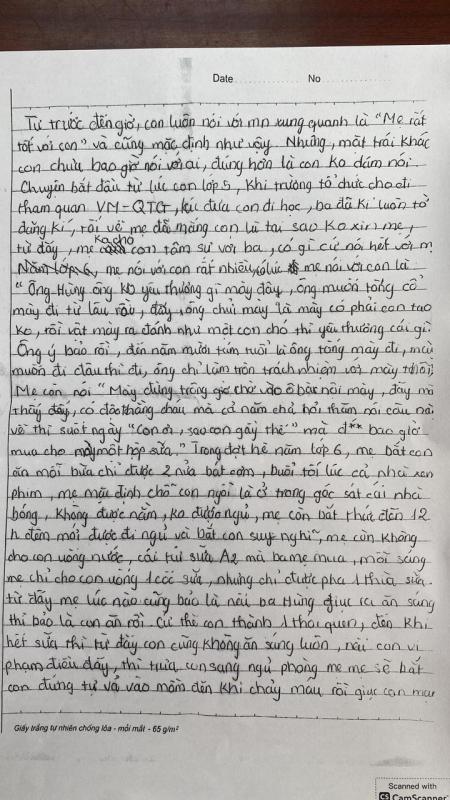 Date No
Từ trước đến giờ, con luôn nói với mn xung quanh là "Mẹ rất
tốt với con" và cũng mặc định như vậy. Nhưng, mặt trái khác
con chưa bao giờ nói với ai, đúng hơn là con ko dám nói
Chuyện bắt đầu từ lúc con lớp 5, khi trường tổ chức cho đi
tham quan VM-QTG, lúc đưa con đi học, ba đã kí luôn tờ
đăng kí, rồi về mẹ đã mắng con là tại sao ko xin mẹ,
từ đấy, mẹ ko cho con tâm sự với ba, có gì cứ nói hết với m
Năm lớp 6, mẹ nói với con rất nhiều, có lúc mẹ nói với con là
"Ông Hùng ông ko yêu thương gì mày đâu, ông muốn tống cổ
mày đi từ lâu rồi, đấy, ông chửi mày là mày có phải con tao
ko, rồi vật mày ra đánh như một con chó thì yêu thương cái gì
Ông ý bảo rồi, đến năm mười tám tuổi là ông tống mày đi, mày
muốn đi đâu thì đi, ông chỉ làm tròn trách nhiệm với mày thôi"
Mẹ còn nói "Mày đừng trông giờ chờ vào ô bà nội mày, đấy mà
thấy đấy, có đứa cháu mà cả năm chả hỏi thăm nổi câu nào
về thì suốt ngày "Con ơi, sao con gầy thế" mà đ** bao giờ
mua cho mày một hộp sữa." Trong đợt hè năm lớp 6, mẹ bắt con
ăn mỗi bữa chỉ được 2 nửa bát cơm, buổi tối lúc cả nhà xem
phim, mẹ mặc định chỗ con ngồi là ở trong góc sát cái nhà
bóng, không được nằm, ko được ngủ, mẹ còn bắt thức đến 12
h đêm mới được đi ngủ và bắt con suy nghĩ, mẹ còn không
cho con uống nước, cái túi sữa A2 mà ba mẹ mua, mỗi sáng
mẹ chỉ cho con uống 1 cốc sữa, nhưng chỉ được pha 1 thìa sữa.
từ đấy mẹ lúc nào cũng bảo là nếu ba Hùng giục ra ăn sáng
thì bảo là con ăn rồi. Cứ thế con thành 1 thói quen, đến khi
hết sữa thì từ đấy con cũng không ăn sáng luôn, nếu con vi
phạm điều đấy, thì trưa con sang ngủ phòng mẹ mẹ sẽ bắt
con đứng tự vả vào mồm đến khi chảy máu rồi giục con mau
Giấy trắng tự nhiên chống lóa - mỏi mắt - 65 g/m²
Scanned with
CS CamScanner